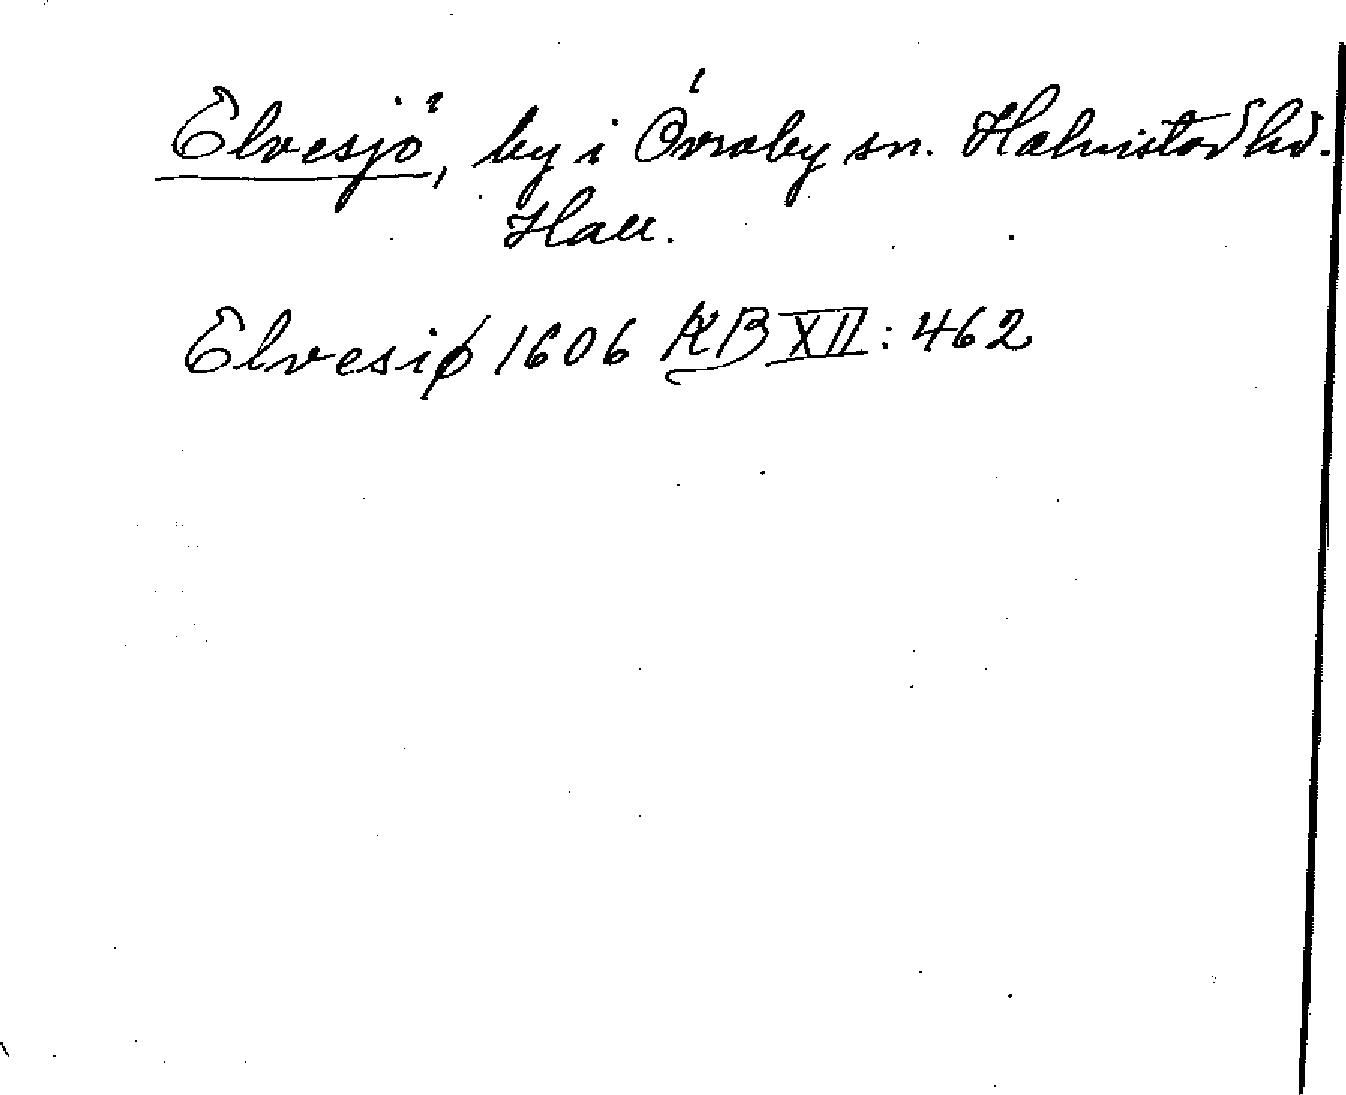 Elvesjö, by i Övraby sn. Halmstad hd.
Hall.
Elvesiø 1606 KB XII: 462